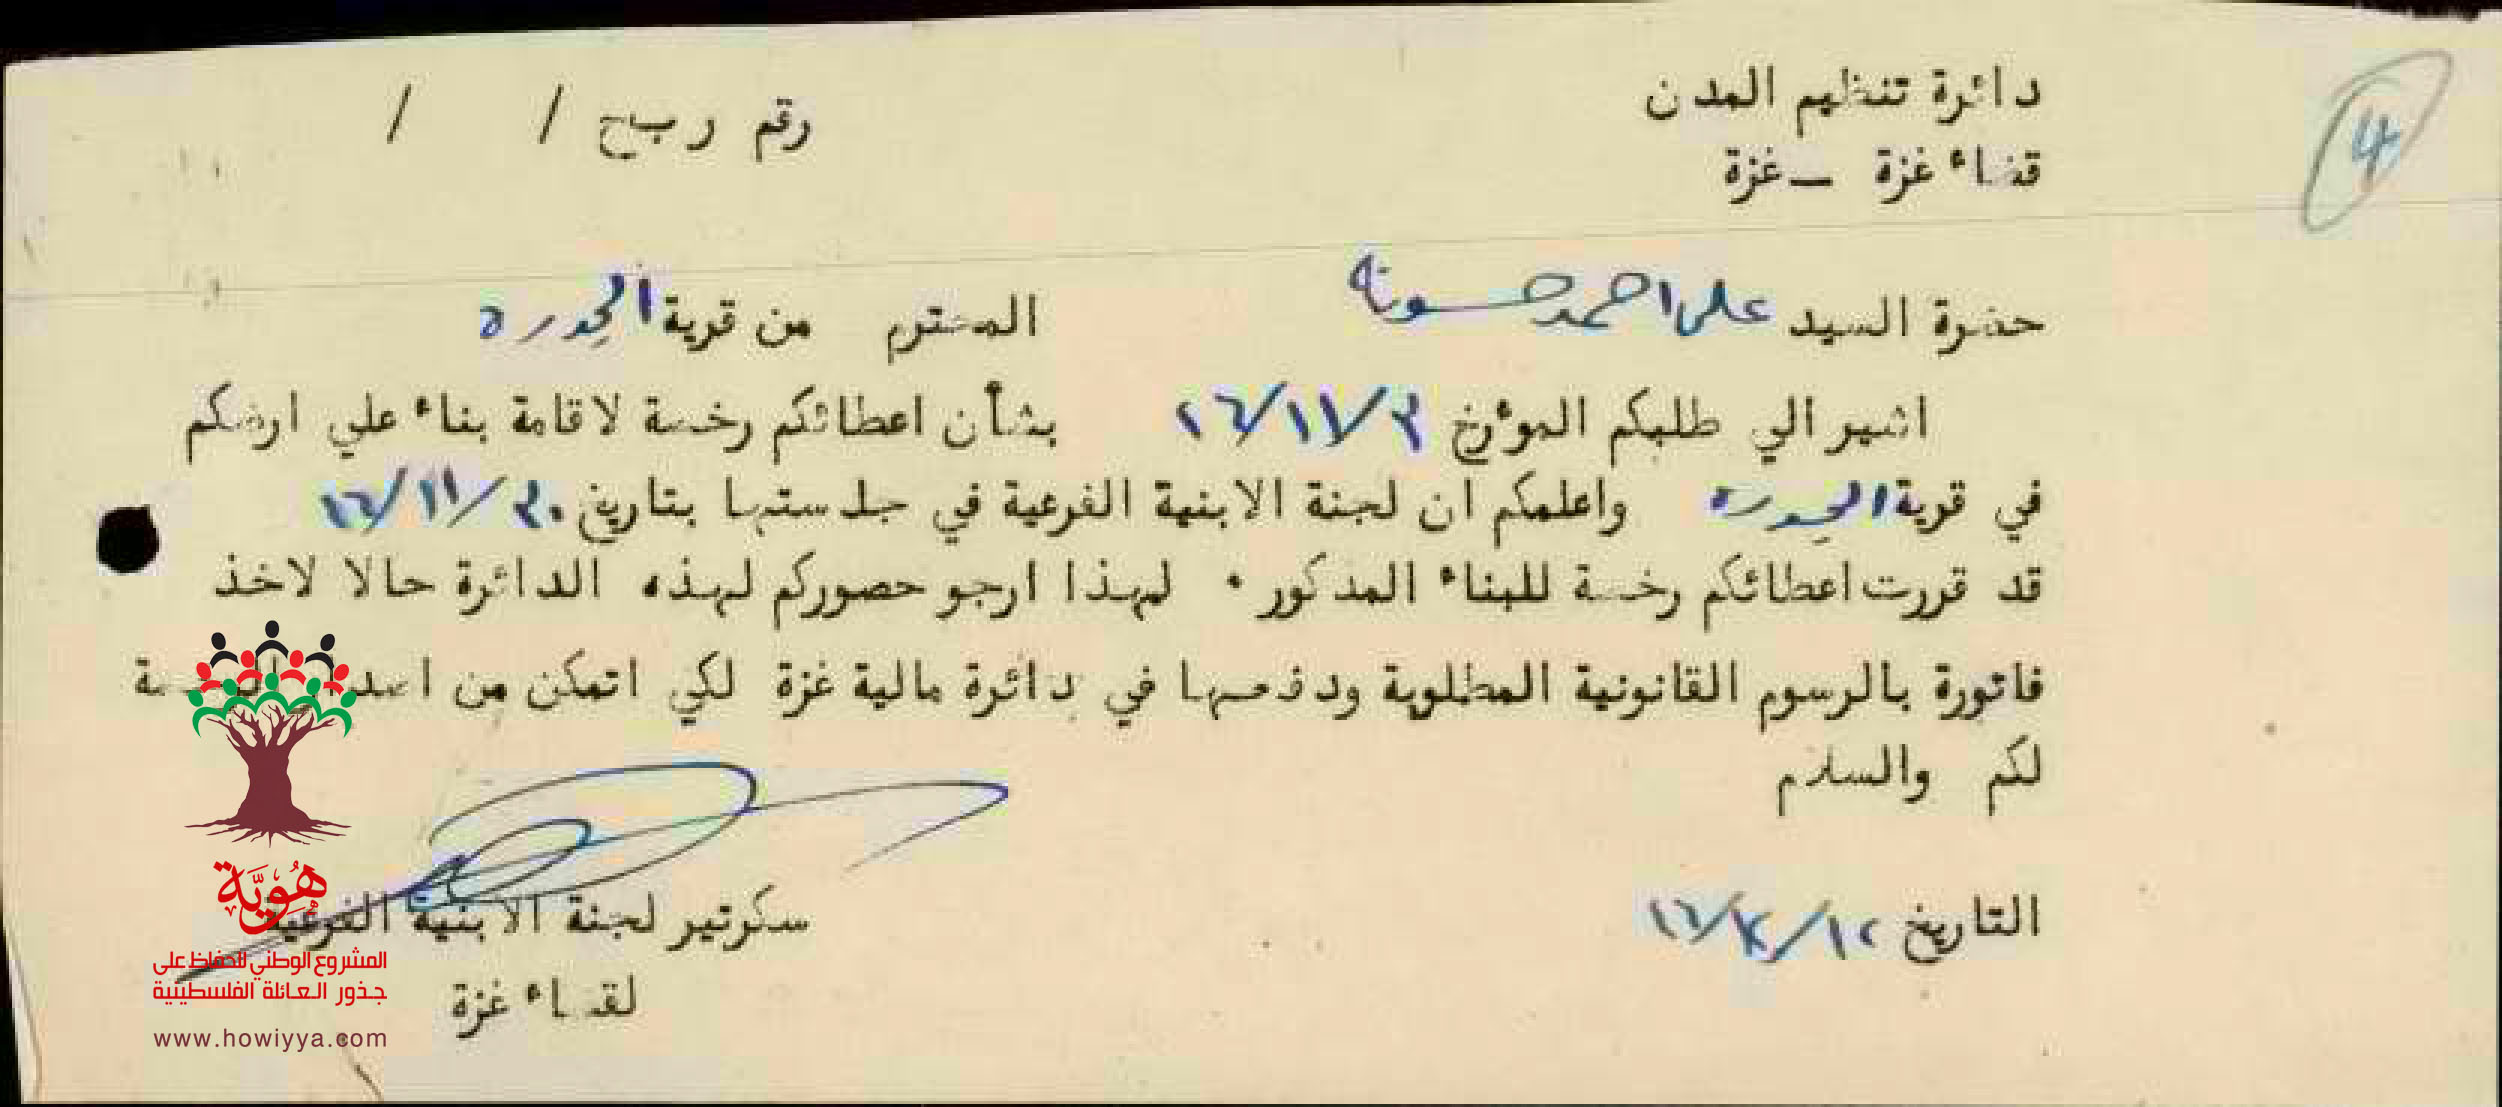 4
دائرة تنظيم المدن
قضاء غزة – غزة
رقم ر ب ج / /
حضرة السيد على احمد حسونه المحترم من قرية الجوره
اشير الي طلبكم المؤرخ بشأن اعطائكم رخصة لاقامة بناء علي ارضكم
في قرية الجوره واعلمكم ان لجنة الابنية الفرعية في جلستها بتاريخ
قد قررت اعطائكم رخصة للبناء المذكور . لهذا ارجو حصوركم لهذه الدائرة حالا لاخذ
فاتورة بالرسوم القانونية المطلوبة ودفعها في دائرة مالية غزة لكي اتمكن من اصدار الرخصة
لكم والسلام
التاريخ
سكرتير لجنة الابنية الفرعية
لقضاء غزة
هُوِيَّة
المشروع الوطني للحفاظ على
جذور العائلة الفلسطينية
www.howiyya.com